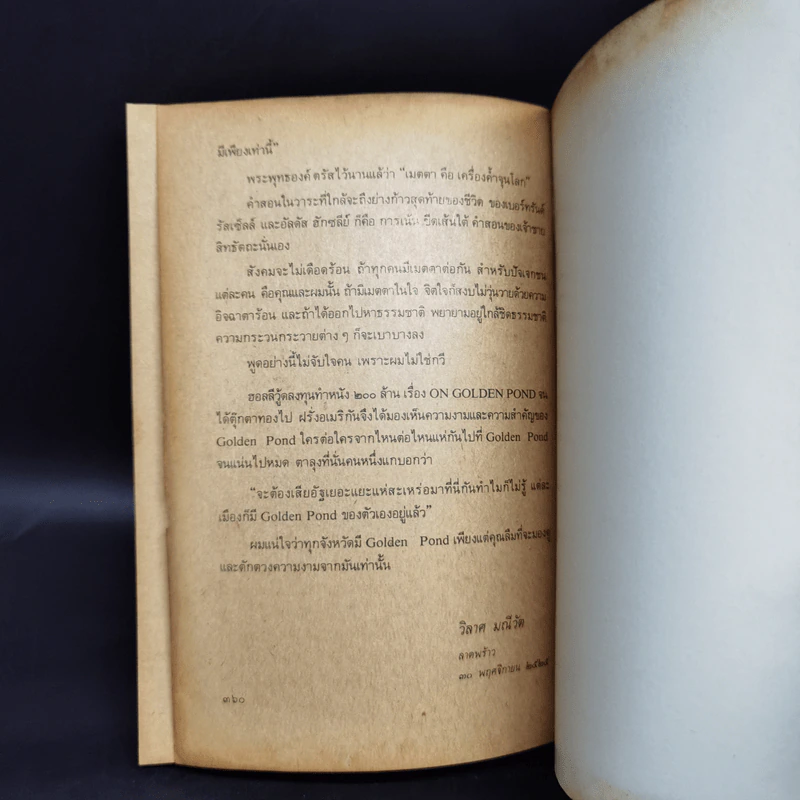 มีเพียงเท่านี้”
พระพุทธองค์ ตรัสไว้นานแล้วว่า “เมตตา คือ เครื่องค้ำจุนโลก”
คำสอนในวาระที่ใกล้จะถึงย่างก้าวสุดท้ายของชีวิต ของเบอร์ทรันด์
รัสเซ็ลล์ และอัลดัส ฮักซลีย์ ก็คือ การเน้น ขีดเส้นใต้ คำสอนของเจ้าชาย
สิทธัตถะนั่นเอง
สังคมจะไม่เดือดร้อน ถ้าทุกคนมีเมตตาต่อกัน สำหรับปัจเจกชน
แต่ละคน คือคุณและผมนั้น ถ้ามีเมตตาในใจ จิตใจก็สงบไม่วุ่นวายด้วยความ
อิจฉาตาร้อน และถ้าได้ออกไปหาธรรมชาติ พยายามอยู่ใกล้ชิดธรรมชาติ
ความกระวนกระวายต่าง ๆ ก็จะเบาบางลง
พูดอย่างนี้ไม่จับใจคน เพราะผมไม่ใช่กวี
ฮอลลีวู้ดลงทุนทำหนัง ๒๐๐ ล้าน เรื่อง ON GOLDEN POND จน
ได้ตุ๊กตาทองไป ฝรั่งอเมริกันจึงได้มองเห็นความงามและความสำคัญของ
Golden Pond ใครต่อใครจากไหนต่อไหนแห่กันไปที่ Golden Pond
จนแน่นไปหมด ตาลุงที่นั่นคนหนึ่งแกบอกว่า
“จะต้องเสียอัฐเยอะแยะแห่สะเหร่อมาที่นี่กันทำไมก็ไม่รู้ แต่ละ
เมืองก็มี Golden Pond ของตัวเองอยู่แล้ว”
ผมแน่ใจว่าทุกจังหวัดมี Golden Pond เพียงแต่คุณลืมที่จะมองดู
และตักตวงความงามจากมันเท่านั้น
วิลาศ มณีวัต
ลาดพร้าว
๓๐ พฤศจิกายน ๒๕๒๕
๓๖๐